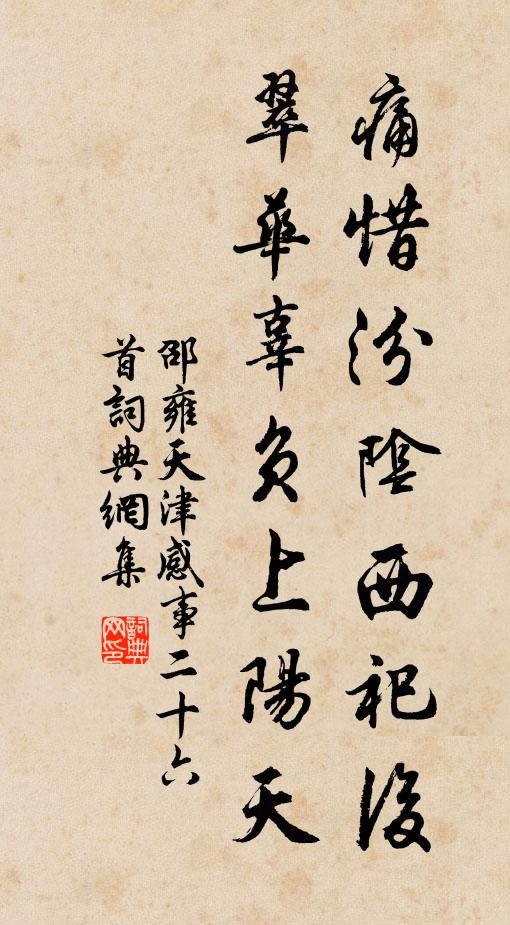 痛惜汾陰西祀後
翠華辜負上陽天
邵雍天津感事二十六
首詞典網集
詞典
网印